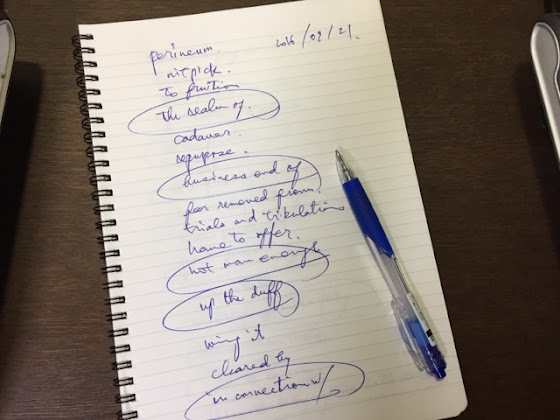 perineum 2016/09/21.
nitpick.
to fruition
the realm of.
cadavar.
business end of
far removed from.
trials and tribulations
have to offer.
not man enough
up the duff
wing it
cleared by
in connection w/